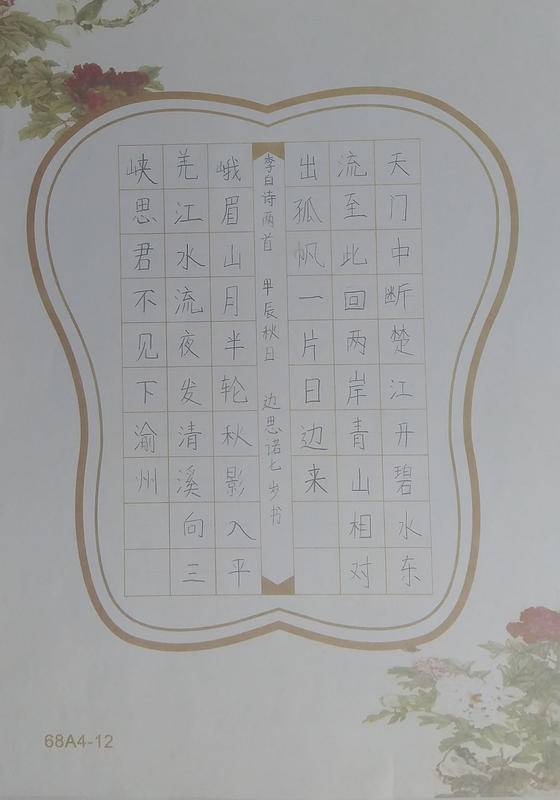 天门中断楚江开碧水东
流至此回两岸青山相对
出孤帆一片日边来
李白诗两首 甲辰秋日 边思诺七岁书
峨眉山月半轮秋影入平
羌江水流夜发清溪向三
峡思君不见下渝州
68A4-12